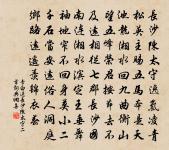 長沙陳太守逸氣凌青
松英主賜五馬本是天
池龍湘水回九曲衡山
望五峰榮君按節去不
及遠相從七郡長沙國
南連湘水濱定王垂舞
袖地窄不回身莫小二
千石當安遠俗人洞庭
鄉路遠遙羨錦衣春
李白送長沙陳太守二
首